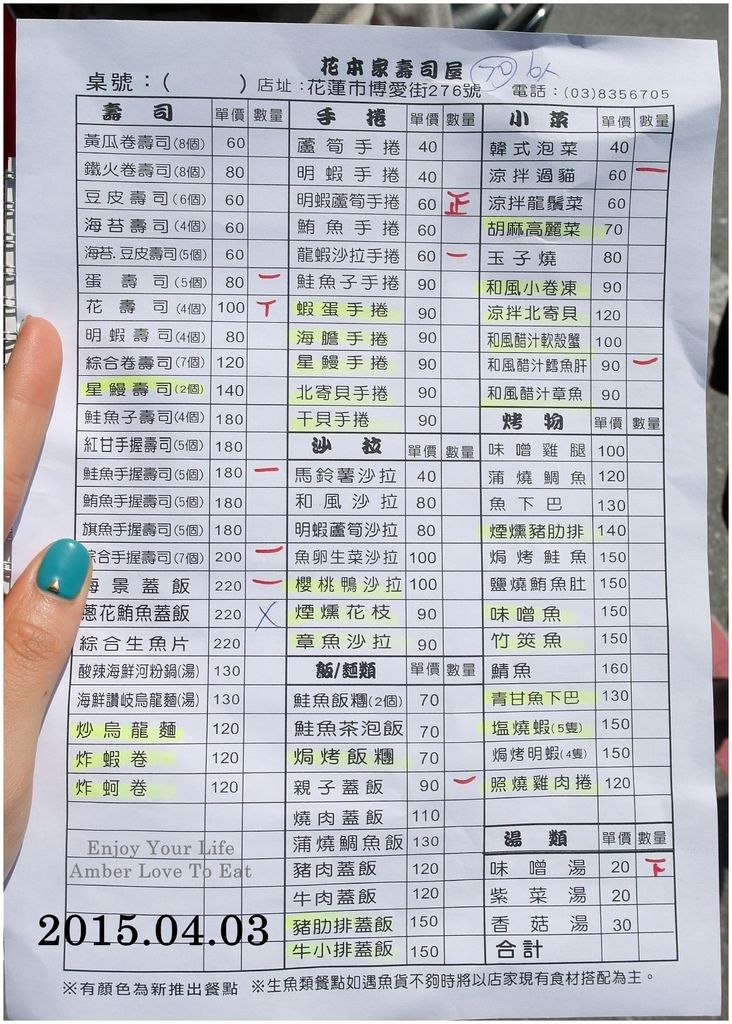 花本家壽司屋 70
桌號：(    ) 店址：花蓮市博愛街276號 電話：(03)8356705
壽司 單價 數量
黃瓜卷壽司(8個) 60
鐵火卷壽司(8個) 80
豆皮壽司(6個) 60
海苔壽司(4個) 60
海苔.豆皮壽司(5個) 60
蛋壽司(5個) 80 一
花壽司(4個) 100 丅
明蝦壽司(4個) 80
綜合卷壽司(7個) 120
星鰻壽司(2個) 140
鮭魚子壽司(4個) 180
紅甘手握壽司(5個) 180
鮭魚手握壽司(5個) 180 一
鮪魚手握壽司(5個) 180
旗魚手握壽司(5個) 180
綜合手握壽司(7個) 200 一
海景蓋飯 220 一
蔥花鮪魚蓋飯 220 X
綜合生魚片 220
酸辣海鮮河粉鍋(湯) 130
海鮮讚岐烏龍麵(湯) 130
炒烏龍麵 120
炸蝦卷 120
炸蚵卷 120
手捲 單價 數量
蘆筍手捲 40
明蝦手捲 40
明蝦蘆筍手捲 60 正
鮪魚手捲 60
龍蝦沙拉手捲 60 一
鮭魚子手捲 90
蝦蛋手捲 90
海膽手捲 90
星鰻手捲 90
北寄貝手捲 90
干貝手捲 90
沙拉 單價 數量
馬鈴薯沙拉 40
和風沙拉 80
明蝦蘆筍沙拉 80
魚卵生菜沙拉 100
櫻桃鴨沙拉 100
煙燻花枝 90
章魚沙拉 90
飯/麵類 單價 數量
鮭魚飯糰(2個) 70
鮭魚茶泡飯 70
焗烤飯糰 70
親子蓋飯 90 一
燒肉蓋飯 110
蒲燒鯛魚飯 130
豬肉蓋飯 120
牛肉蓋飯 120
豬肋排蓋飯 150
牛小排蓋飯 150
小菜 單價 數量
韓式泡菜 40
涼拌過貓 60 一
涼拌龍鬚菜 60
胡麻高麗菜 70
玉子燒 80
和風小卷凍 90
涼拌北寄貝 120
和風醋汁軟殼蟹 100
和風醋汁鱈魚肝 90 一
和風醋汁章魚 90
烤物 單價 數量
味噌雞腿 100
蒲燒鯛魚 120
魚下巴 130
煙燻豬肋排 140
焗烤鮭魚 150
鹽燒鮪魚肚 150
味噌魚 150
竹筴魚 150
鯖魚 160
青甘魚下巴 130
塩燒蝦(5隻) 150
焗烤明蝦(4隻) 150
照燒雞肉捲 120
湯類 單價 數量
味噌湯 20 下
紫菜湯 20
香菇湯 30
合計
Enjoy Your Life
Amber Love To Eat
2015.04.03
※有顏色為新推出餐點 ※生魚類餐點如遇魚貨不夠時將以店家現有食材搭配為主。